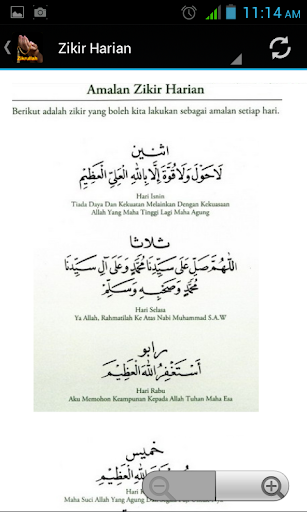 11:14 AM
Zikrullah
Zikir Harian
Amalan Zikir Harian
Berikut adalah zikir yang boleh kita lakukan sebagai amalan setiap hari.
اثنين
لَا حَوْلَ وَلَا قُوَّةَ إِلَّا بِاللهِ الْعَلِيِّ الْعَظِيْمِ
Hari Isnin
Tiada Daya Dan Kekuatan Melainkan Dengan Kekuasaan
Allah Yang Maha Tinggi Lagi Maha Agung
ثلاثا
اَللّٰهُمَّ صَلِّ عَلَى سَيِّدِنَا مُحَمَّدٍ وَعَلَى آلِ سَيِّدِنَا
مُحَمَّدٍ وَصَحْبِهِ وَسَلِّمْ
Hari Selasa
Ya Allah, Rahmatilah Ke Atas Nabi Muhammad S.A.W
رابو
أَسْتَغْفِرُ اللهَ الْعَظِيْمَ
Hari Rabu
Aku Memohon Keampunan Kepada Allah Tuhan Maha Esa
خميس
اللهِ الْعَظِيْمِ
Hari
Maha Suci Allah Yang Agung